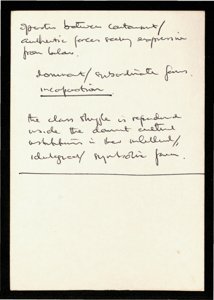 between containment/
authentic forces seeking expression
from below.
dominant/subordinate forms.
incorporation
the class struggle is reproduced
inside the dominant cultural
institutions in their intellectual,
ideological/symbolic form.